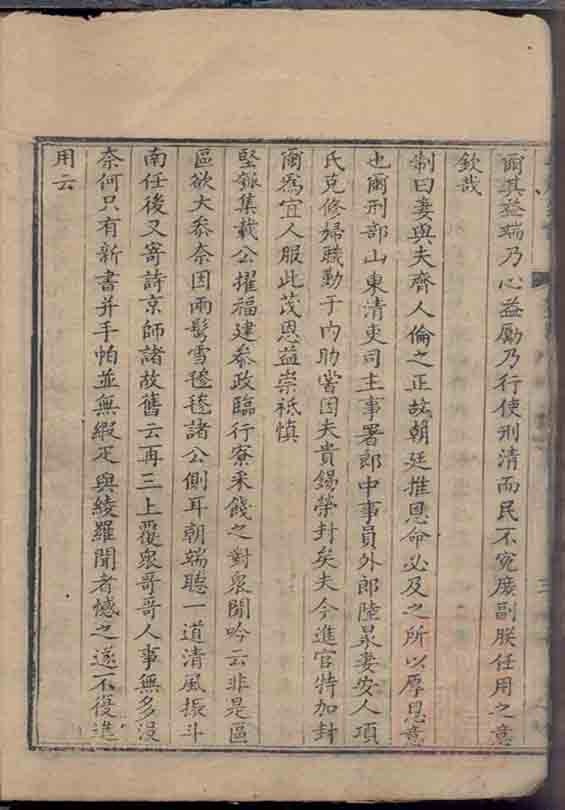 爾其益端乃心益勵乃行使刑清而民不寃庶副朕任用之意
欽哉
制曰妻與夫齊人倫之正故朝廷推恩命必及之所以厚恩意
也爾刑部山東清吏司主事署郎中事員外郎陸泉妻安人項
氏克修婦職勤于內助嘗因夫貴錫榮封矣夫今進官特加封
爾爲宜人服此茂恩益崇祗慎
堅瓠集載公擢福建叅政臨行寮寀餞之對衆閒吟云非是區
區欲大叅奈因兩鬓雪毿毿諸公側耳朝端聽一道清風振斗
南任後又寄詩京師諸故舊云再三上覆衆哥哥人事無多沒
奈何只有新書并手帕並無緞疋與綾羅聞者憾之遂不復進
用云